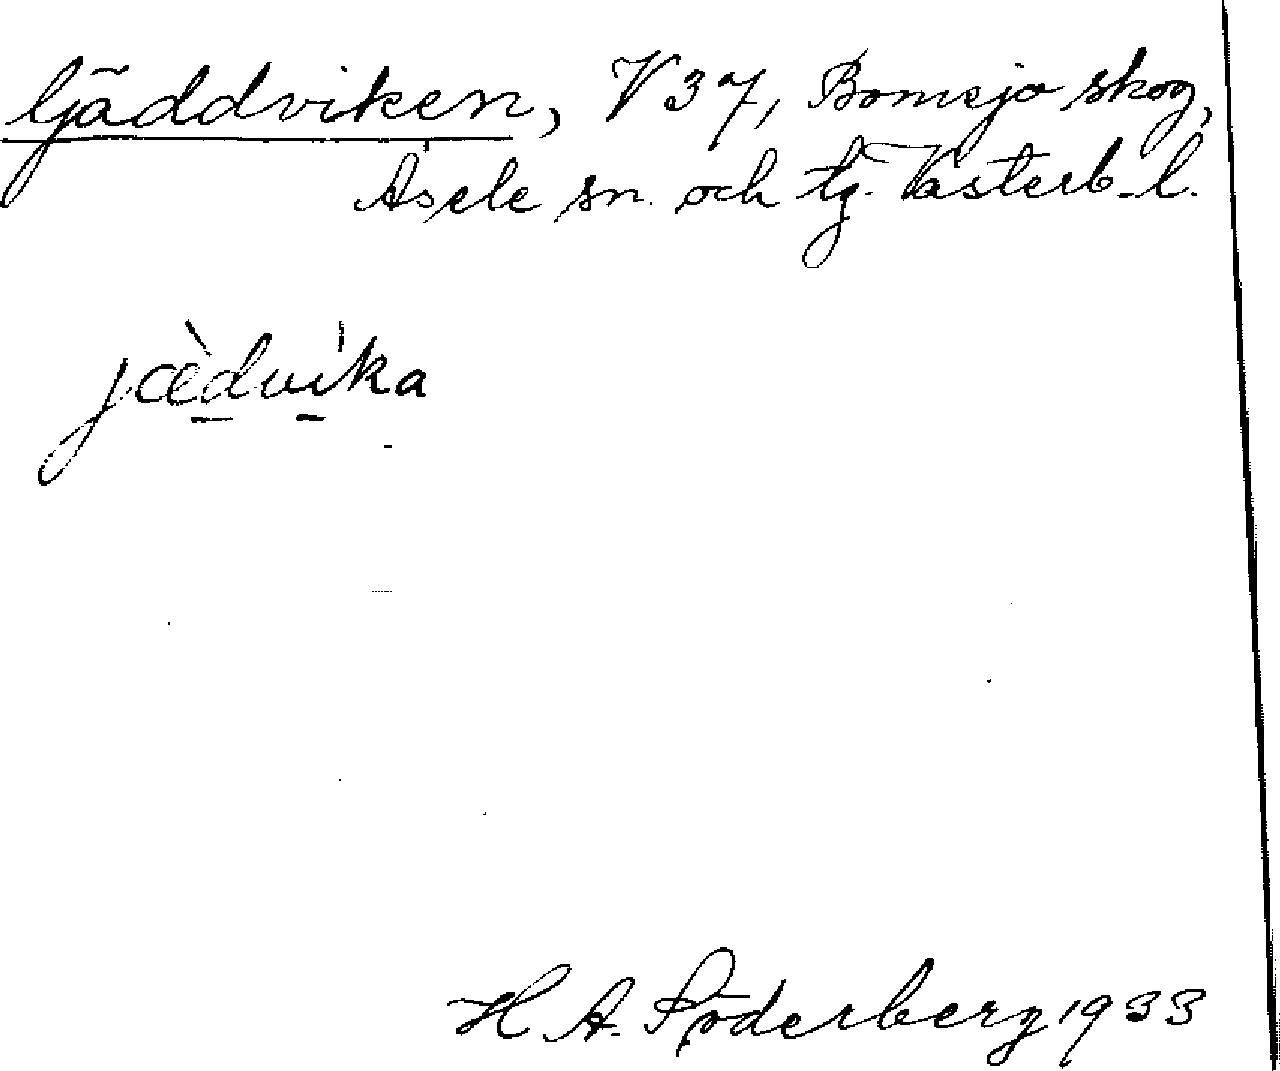 Gäddviken, V 37, Bomsjö skog,
Åsele sn. och tg. Västerb. l.
jæ̀dvika
H. A. Söderberg 1933